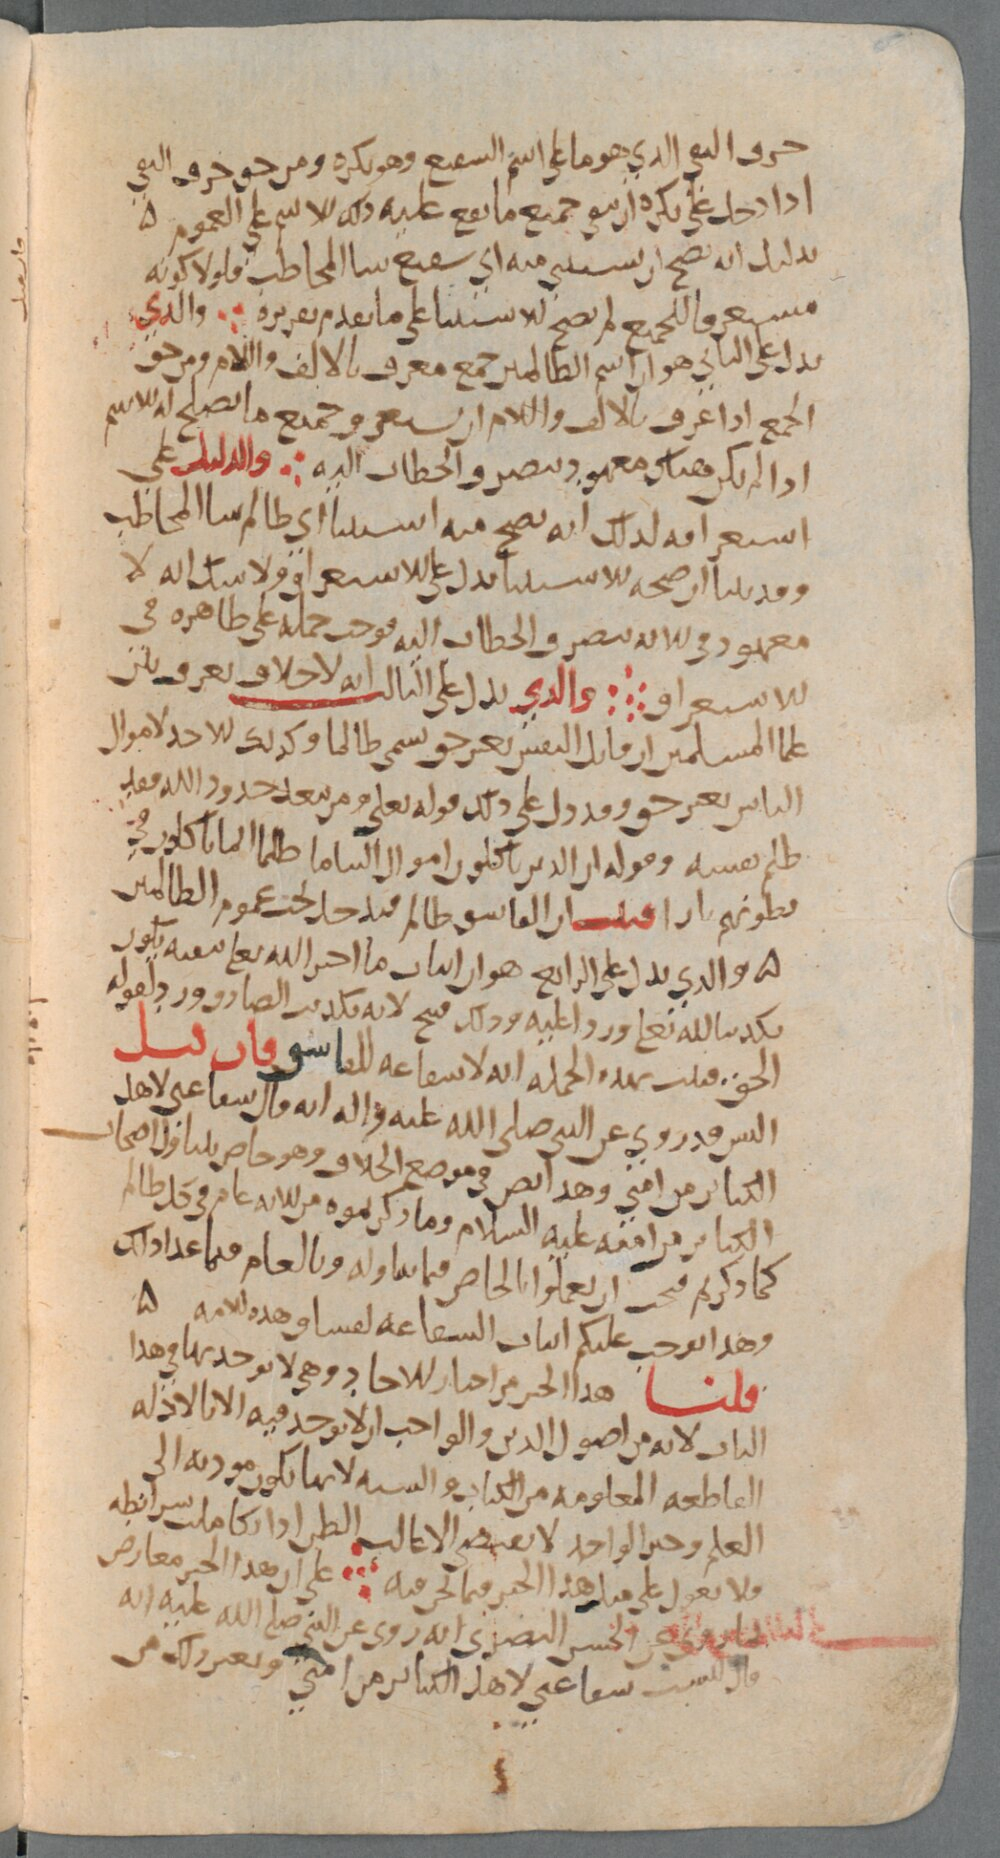 حرف النفي الذي هو ما على اسم الشفيع وهو نكرة ومن حق حرف النفي
اذا دخل على نكرة ان ينفي جميع ما يقع عليه ذلك الاسم على العموم ه
بدليل انه يصح ان يستثني منه اي شفيع شا المخاطب فلولا كونه
مستغرقا للجميع لم يصح الاستثنا على ما تقدم تقريره ∴ والذي
يدل على الثاني هو ان اسم الظالمين جمع معرف بالالف واللام ومن حق
الجمع اذا عرف بالالف واللام ان يستغرق جميع ما يصلح له الاسم
اذا لم يكن هناك معهود ينصرف الخطاب اليه ∴ والدليل على
استغراقه لذلك انه يصح منه استثنا اي ظالم شا المخاطب
وقد بينا ان صحة الاستثنا تدل على الاستغراق ولا شك انه لا
معهود في الاية ينصرف الخطاب اليه فوجب حمله على ظاهره في
الاستغراق ∴ والذي يدل على الثالث انه لا خلاف يعرف بين
علما المسلمين ان قاتل النفس بغير حق يسمى ظالما وكذلك الاخذ لاموال
الناس بغير حق وقد دل على ذلك قوله تعلى ومن يتعد حدود الله فقد
ظلم نفسه وقوله ان الذين ياكلون اموال اليتاما ظلما انما ياكلون في
بطونهم نارا فثبت ان الفاسق ظالم فيدخل تحت عموم الظالمين
ه والذي يدل على الرابع هو ان اثبات ما اخبر الله تعلى بنفيه يكون
تكذيبا لله تعلى وردا عليه وذلك قبيح لانه تكذيب الصادق ورد لقوله
الحق فثبت بهذه الجملة انه لا شفاعة للفاسق فان قيل
اليس قد روي عن النبي صلى الله عليه واله انه قال شفاعتي لاهل
الكبائر من امتي وهذا نص في موضع الخلاف وهو خاص يتناول اصحاب
الكبائر من امته عليه السلام وما ذكرتموه من الاية عام في كل ظالم
كما ذكرتم فيجب ان يعملوا بالخاص فيما يتناوله وبالعام فيما عدا ذلك
وهذا يوجب عليكم اثبات الشفاعة لفساق هذه الامة ه
قلنا هذا الخبر من اخبار الاحاد وهي لا يوخذ بها في هذا
الباب لانه من اصول الدين والواجب ان لا يوخذ فيه الا بالادلة
القاطعة المعلومة من الكتاب والسنة لانها تكون مودية الى
العلم وخبر الواحد لا يقتضي الا غالب الظن اذا تكاملت شرائطه
فلا يعول على مثل هذا الخبر فيما نحن فيه ∴ على ان هذا الخبر معارض
بما روي عن الحسن البصري انه روى عن النبي صلى الله عليه انه
قال ليست شفاعتي لاهل الكبائر من امتي وبغير ذلك من